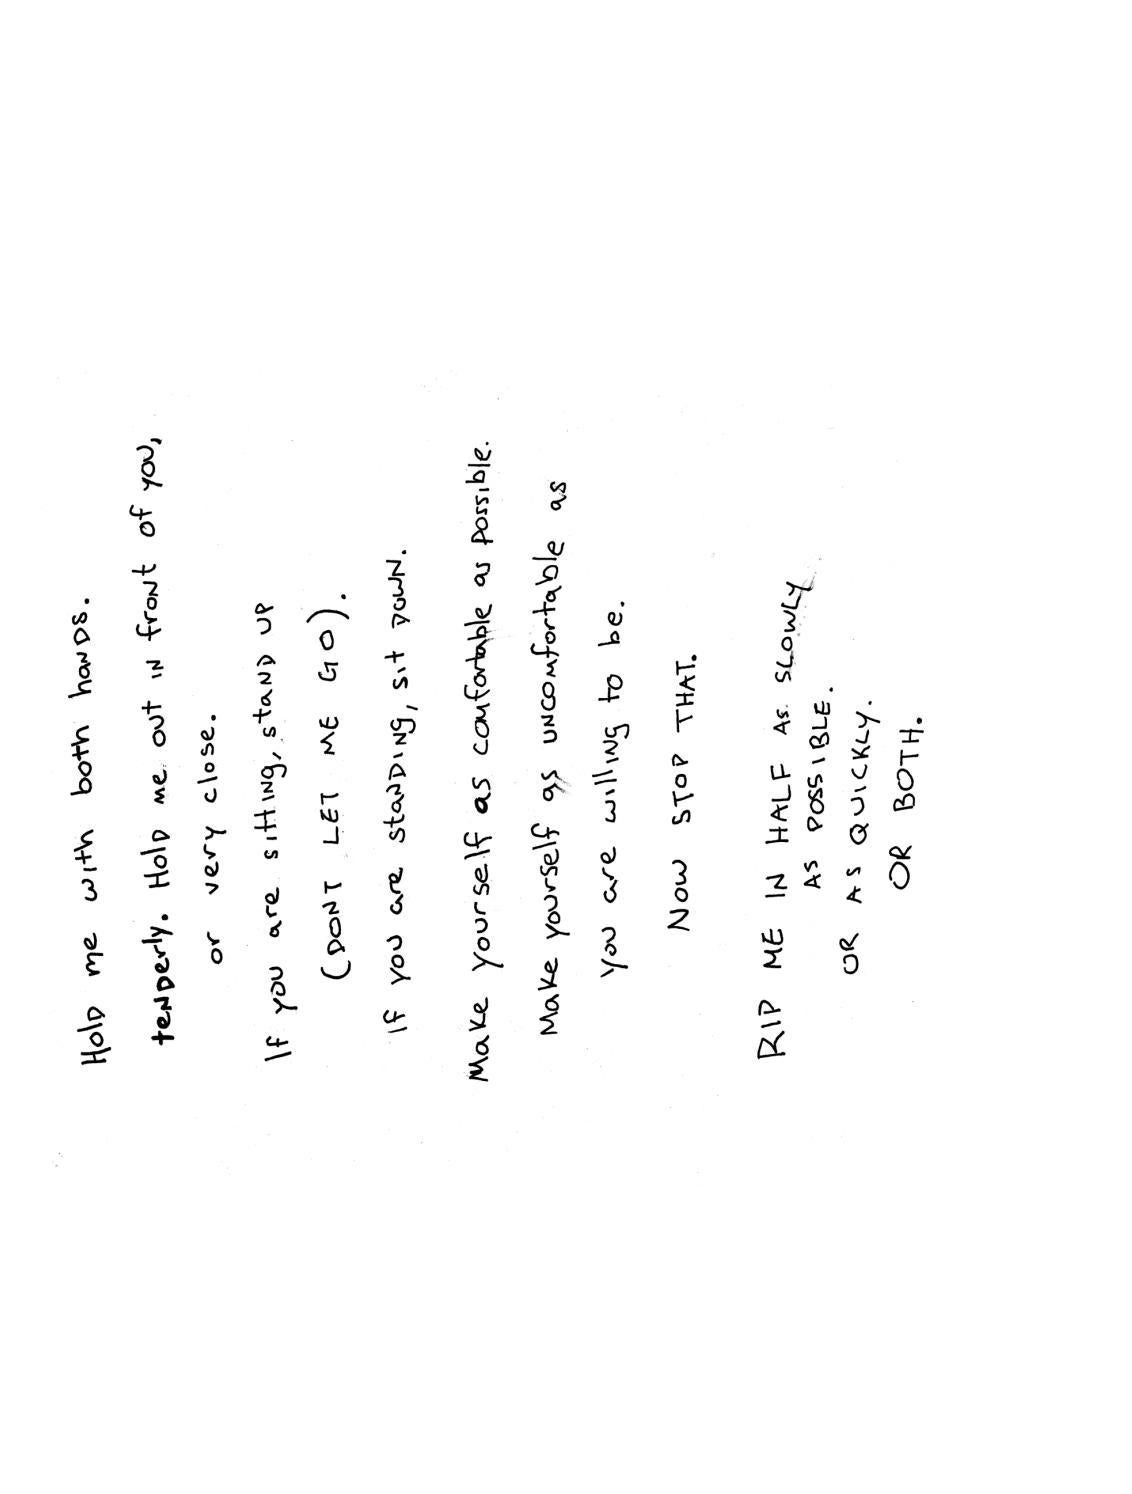 Hold me with both hands.
tenderly. Hold me out in front of you,
or very close.
If you are sitting, stand up
(DONT LET ME GO).
If you are standing, sit down.
Make yourself as comfortable as possible.
Make yourself as uncomfortable as
you are willing to be.
Now STOP THAT.
RIP ME IN HALF AS SLOWLY
AS POSSIBLE.
OR AS QUICKLY.
OR BOTH.